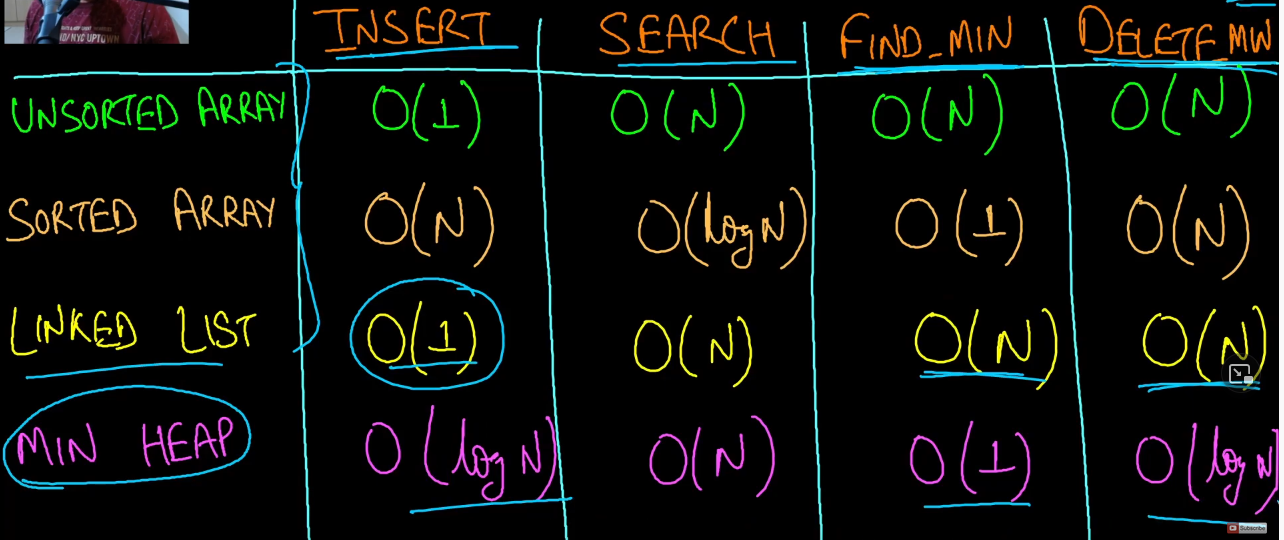 INSERT SEARCH FIND_MIN DELETE MIN
UNSORTED ARRAY O(1) O(N) O(N) O(N)
SORTED ARRAY O(N) O(log N) O(1) O(N)
LINKED LIST O(1) O(N) O(N) O(N)
MIN HEAP O(log N) O(N) O(1) O(log N)
Subscribe